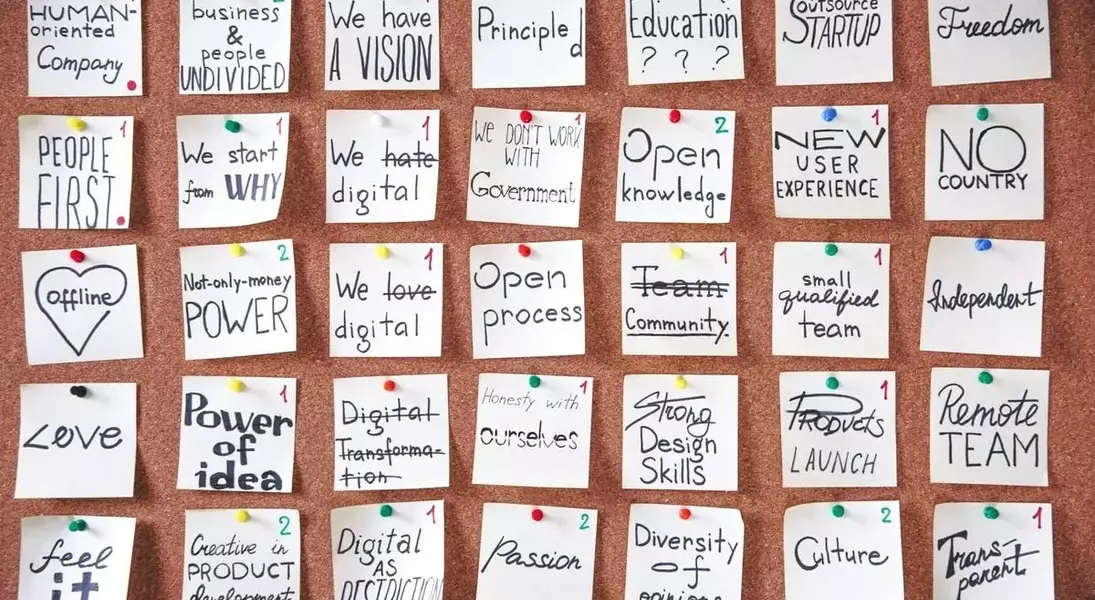 HUMAN-
oriented
Company
business
&
people
UNDIVIDED
We have
A VISION
Principled
Education
? ? ?
Outsource
STARTUP
Freedom
1
PEOPLE
FIRST.
1
We start
from WHY
1
We hate
digital
1
We DON'T WORK
WITH
Government
2
Open
knowledge
1
NEW
USER
EXPERIENCE
NO
COUNTRY
offline
2
Not-only-money
POWER
1
We love
digital
Open
process
1
Team
Community.
1
small
qualified
team
Independent
Love
1
Power
of
idea
Digital
Transforma-
tion
1
Honesty with
ourselves
Strong
Design
Skills
1
Products
LAUNCH
Remote
TEAM
feel
it
2
Creative in
PRODUCT
development
1
Digital
AS
2
Passion
Diversity
of
opinions
2
Culture
1
Trans-
parent